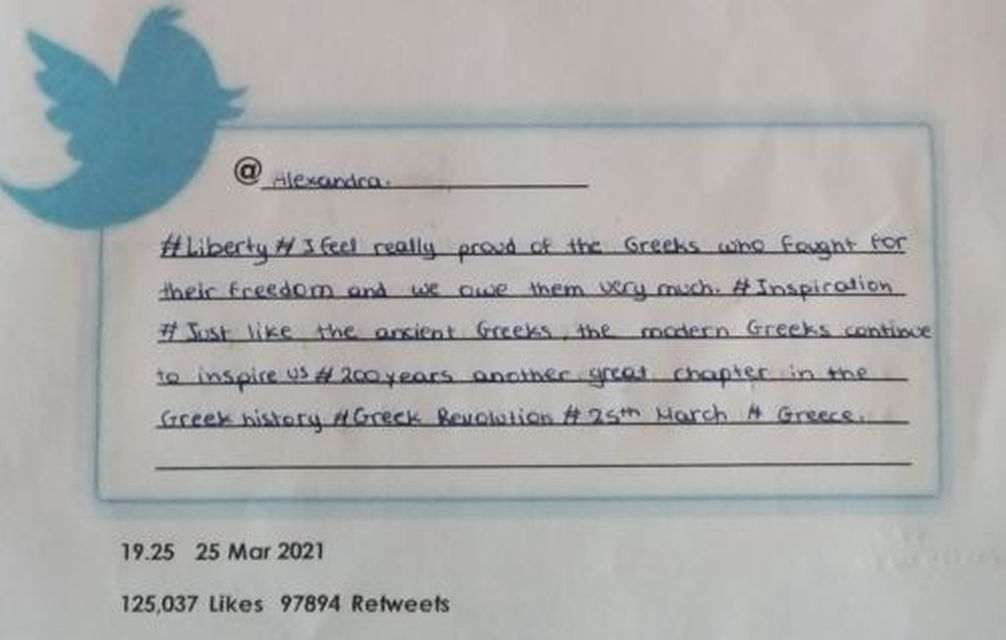 @ Alexandra.
#Liberty # I feel really proud of the Greeks who fought for
their freedom and we owe them very much. # Inspiration
# Just like the ancient Greeks, the modern Greeks continue
to inspire us # 200 years another great chapter in the
Greek history # Greek Revolution # 25th March # Greece.
19.25 25 Mar 2021
125,037 Likes 97894 Retweets